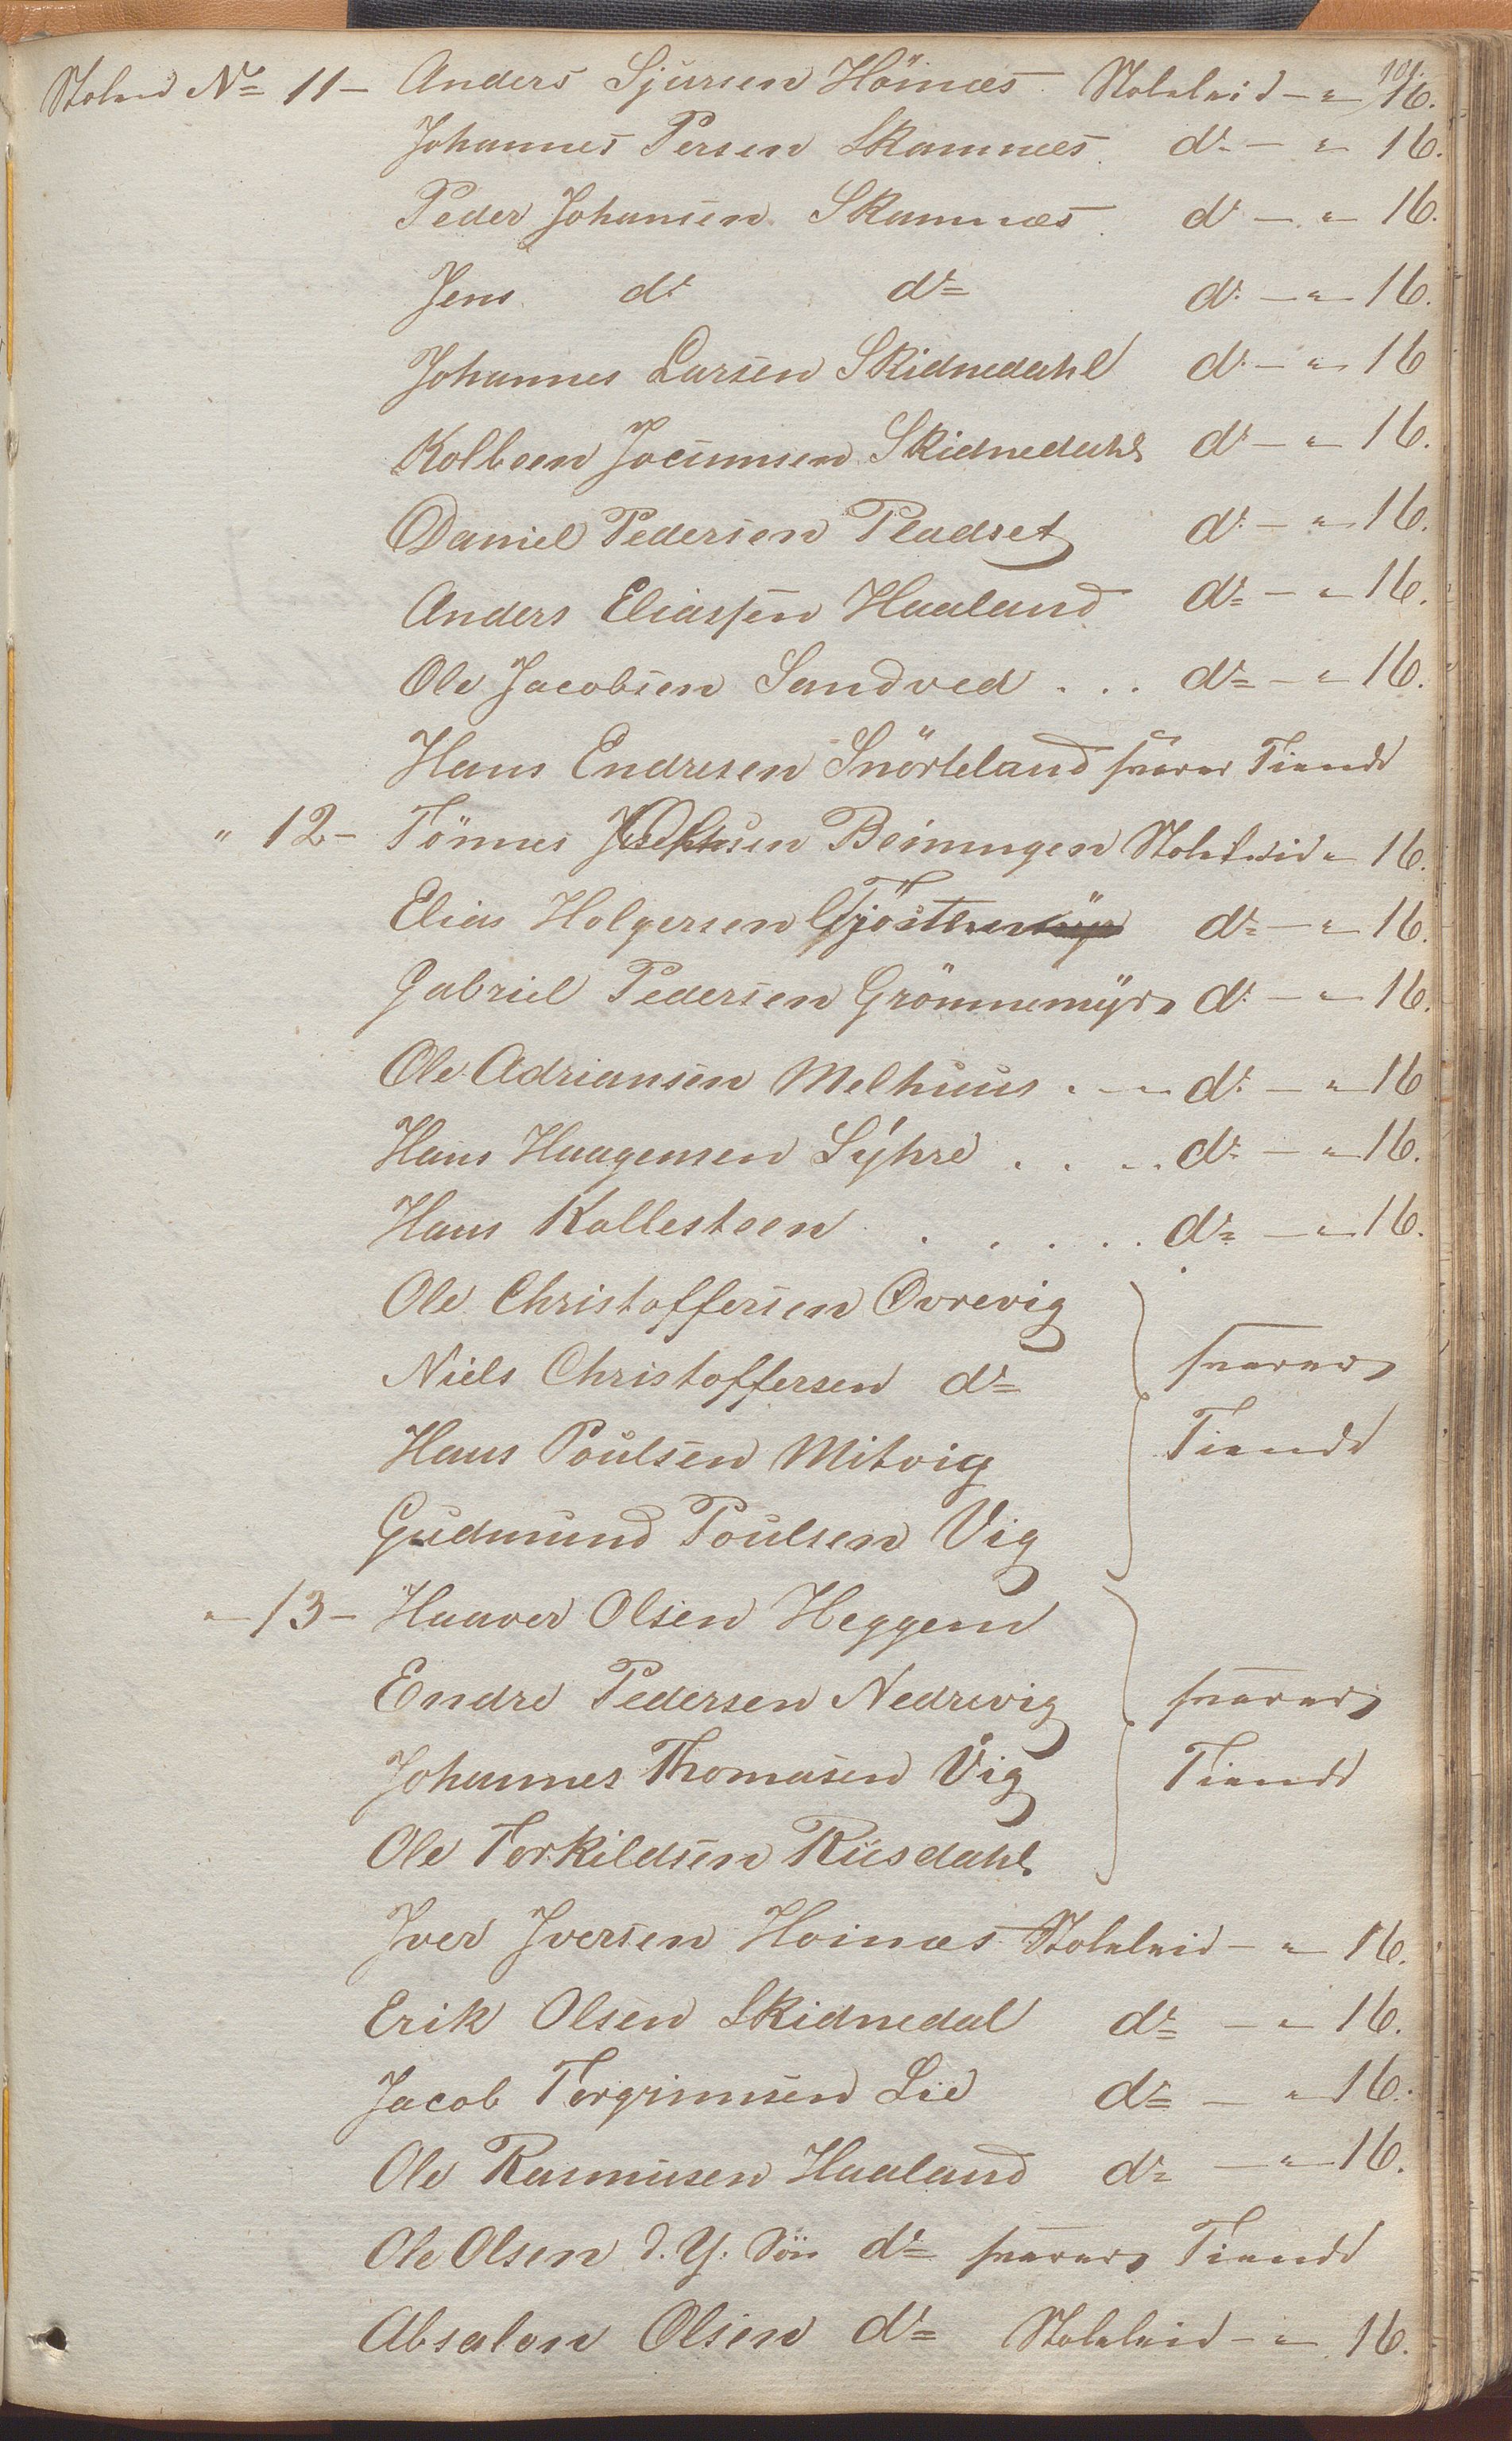 101.
Stolen No 11 - Anders Sjursen Höinæs Stoleleie - " - 16.
Johannes Persen Skamnæs do - " 16.
Peder Johansen Skamnæs do - " - 16.
Jens do do do - " - 16.
Johannes Larsen Skidnedahl do - " - 16
Kolbeen Skidnedahl do - " - 16.
Daniel Pedersen Pladset do - " - 16.
Anders Eliassen Haaland do - " 16.
Ole Jacobsen Sandved . . . do - " 16.
Hans Endresen Snörteland svarer Tiende
" 12 - Tönnes Beiningen Stoleleie " 16.
Elias Holgersen do - " - 16.
Gabriel Pedersen Grönnemyr do - " - 16.
Ole Adriansen Melhuus . - - do - " 16
Hans Haagensen Lyhre . . - . do - " 16.
Hans Kallesteen . . . . . do - " 16.
Ole Christoffersen Øvrevig
Niels Christoffersen do svarer
Hans Poulsen Mitvig Tiende
Gudmund Poulsen Vig
" - 13 - Haaver Olsen Heggem
Endre Pedersen Nedrevig svarer
Johannes Thomasen Vig Tiende
Ole Torkildsen Riisdahl
Iver Iversen Hoinæs Stoleleie - " - 16.
Erik Olsen Skidnedal do - " - 16.
Jacob Torgrimsen Lie do - " 16.
Ole Rasmusen Haaland do - " - 16.
Ole Olsen d. Y. Sön do svarer Tiende
Absalon Olsen do Stoleleie - " - 16.